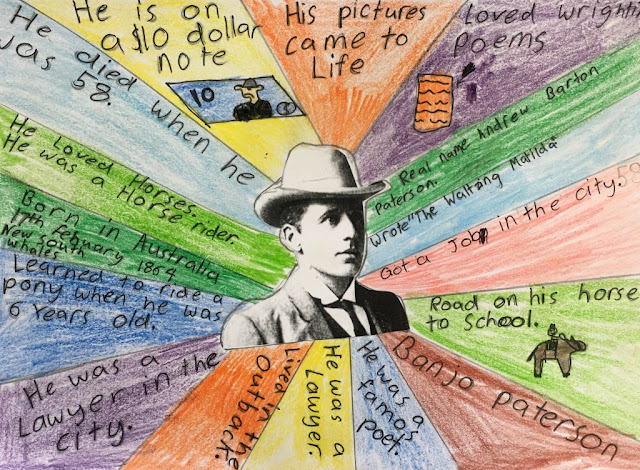 He is on
a $10 dollar
note
10
His pictures
came to
Life
Loved
poems
Real name Andrew Barton
paterson.
Wrote "The Waltzng Matilda"
Got a Job in the city.
Road on his horse
to School.
Banjo paterson
He was a
famos
poet.
He was a
Lawyer.
Lived in the
Outback.
He was a
Lawyer in the
city.
Learned to ride a
pony when he was
6 years old.
Born in Australia
17th February 1864
New South
Whales
He Loved Horses.
He was a Horse rider.
He died when he
was 58.